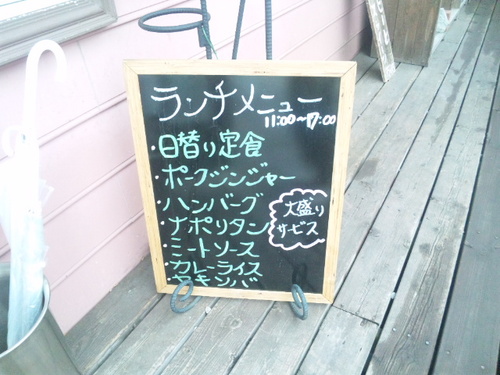 ランチメニュー
11:00~17:00
・日替り定食
・ポークジンジャー
・ハンバーグ
・ナポリタン
・ミートソース
・カレーライス
大盛り
サービス